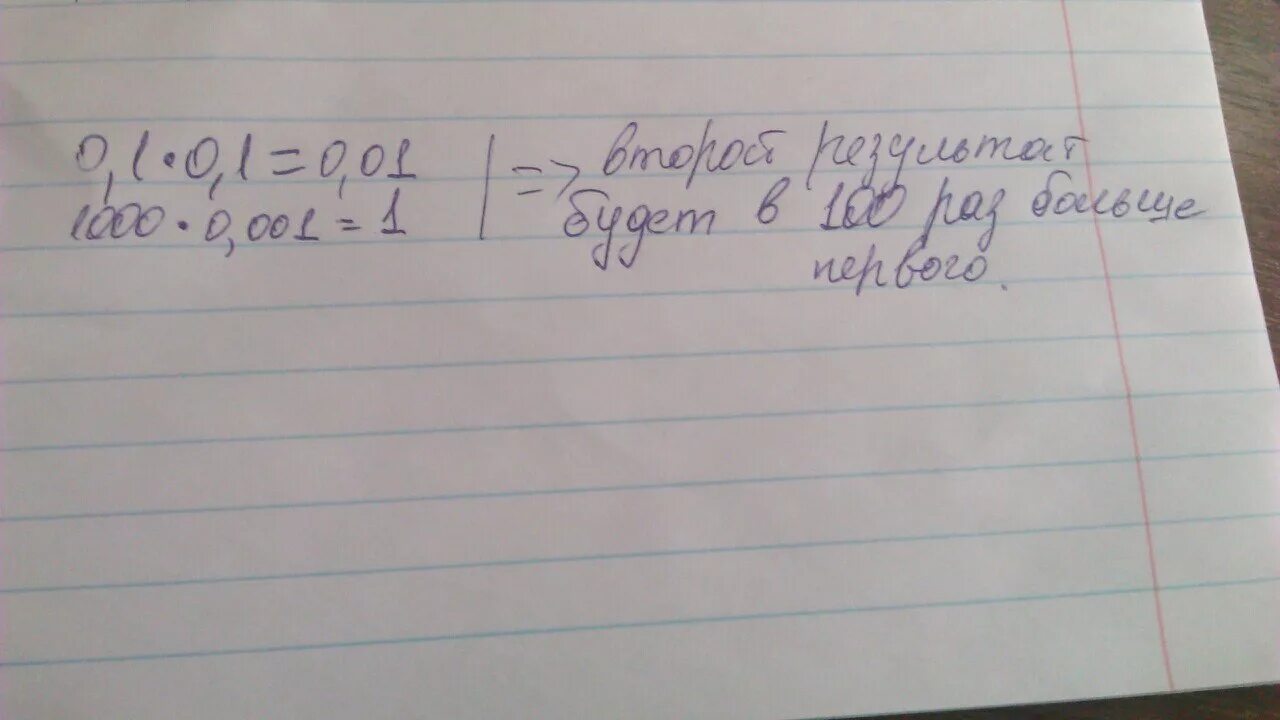 0,1·0,1=0,01 | => второй результат
1000·0,001=1 | будет в 100 раз больше
первого.